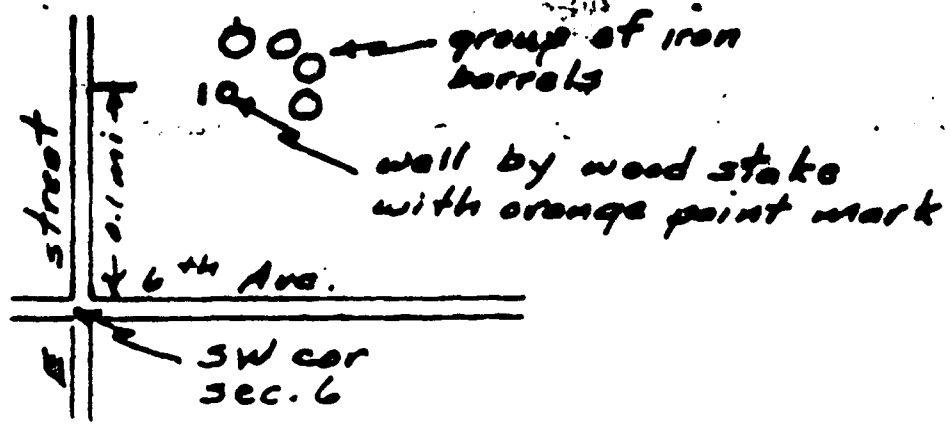 group of iron
barrels
well by wood stake
with orange paint mark
E street
0.1 mi
6th Ave.
SW cor
sec. 6